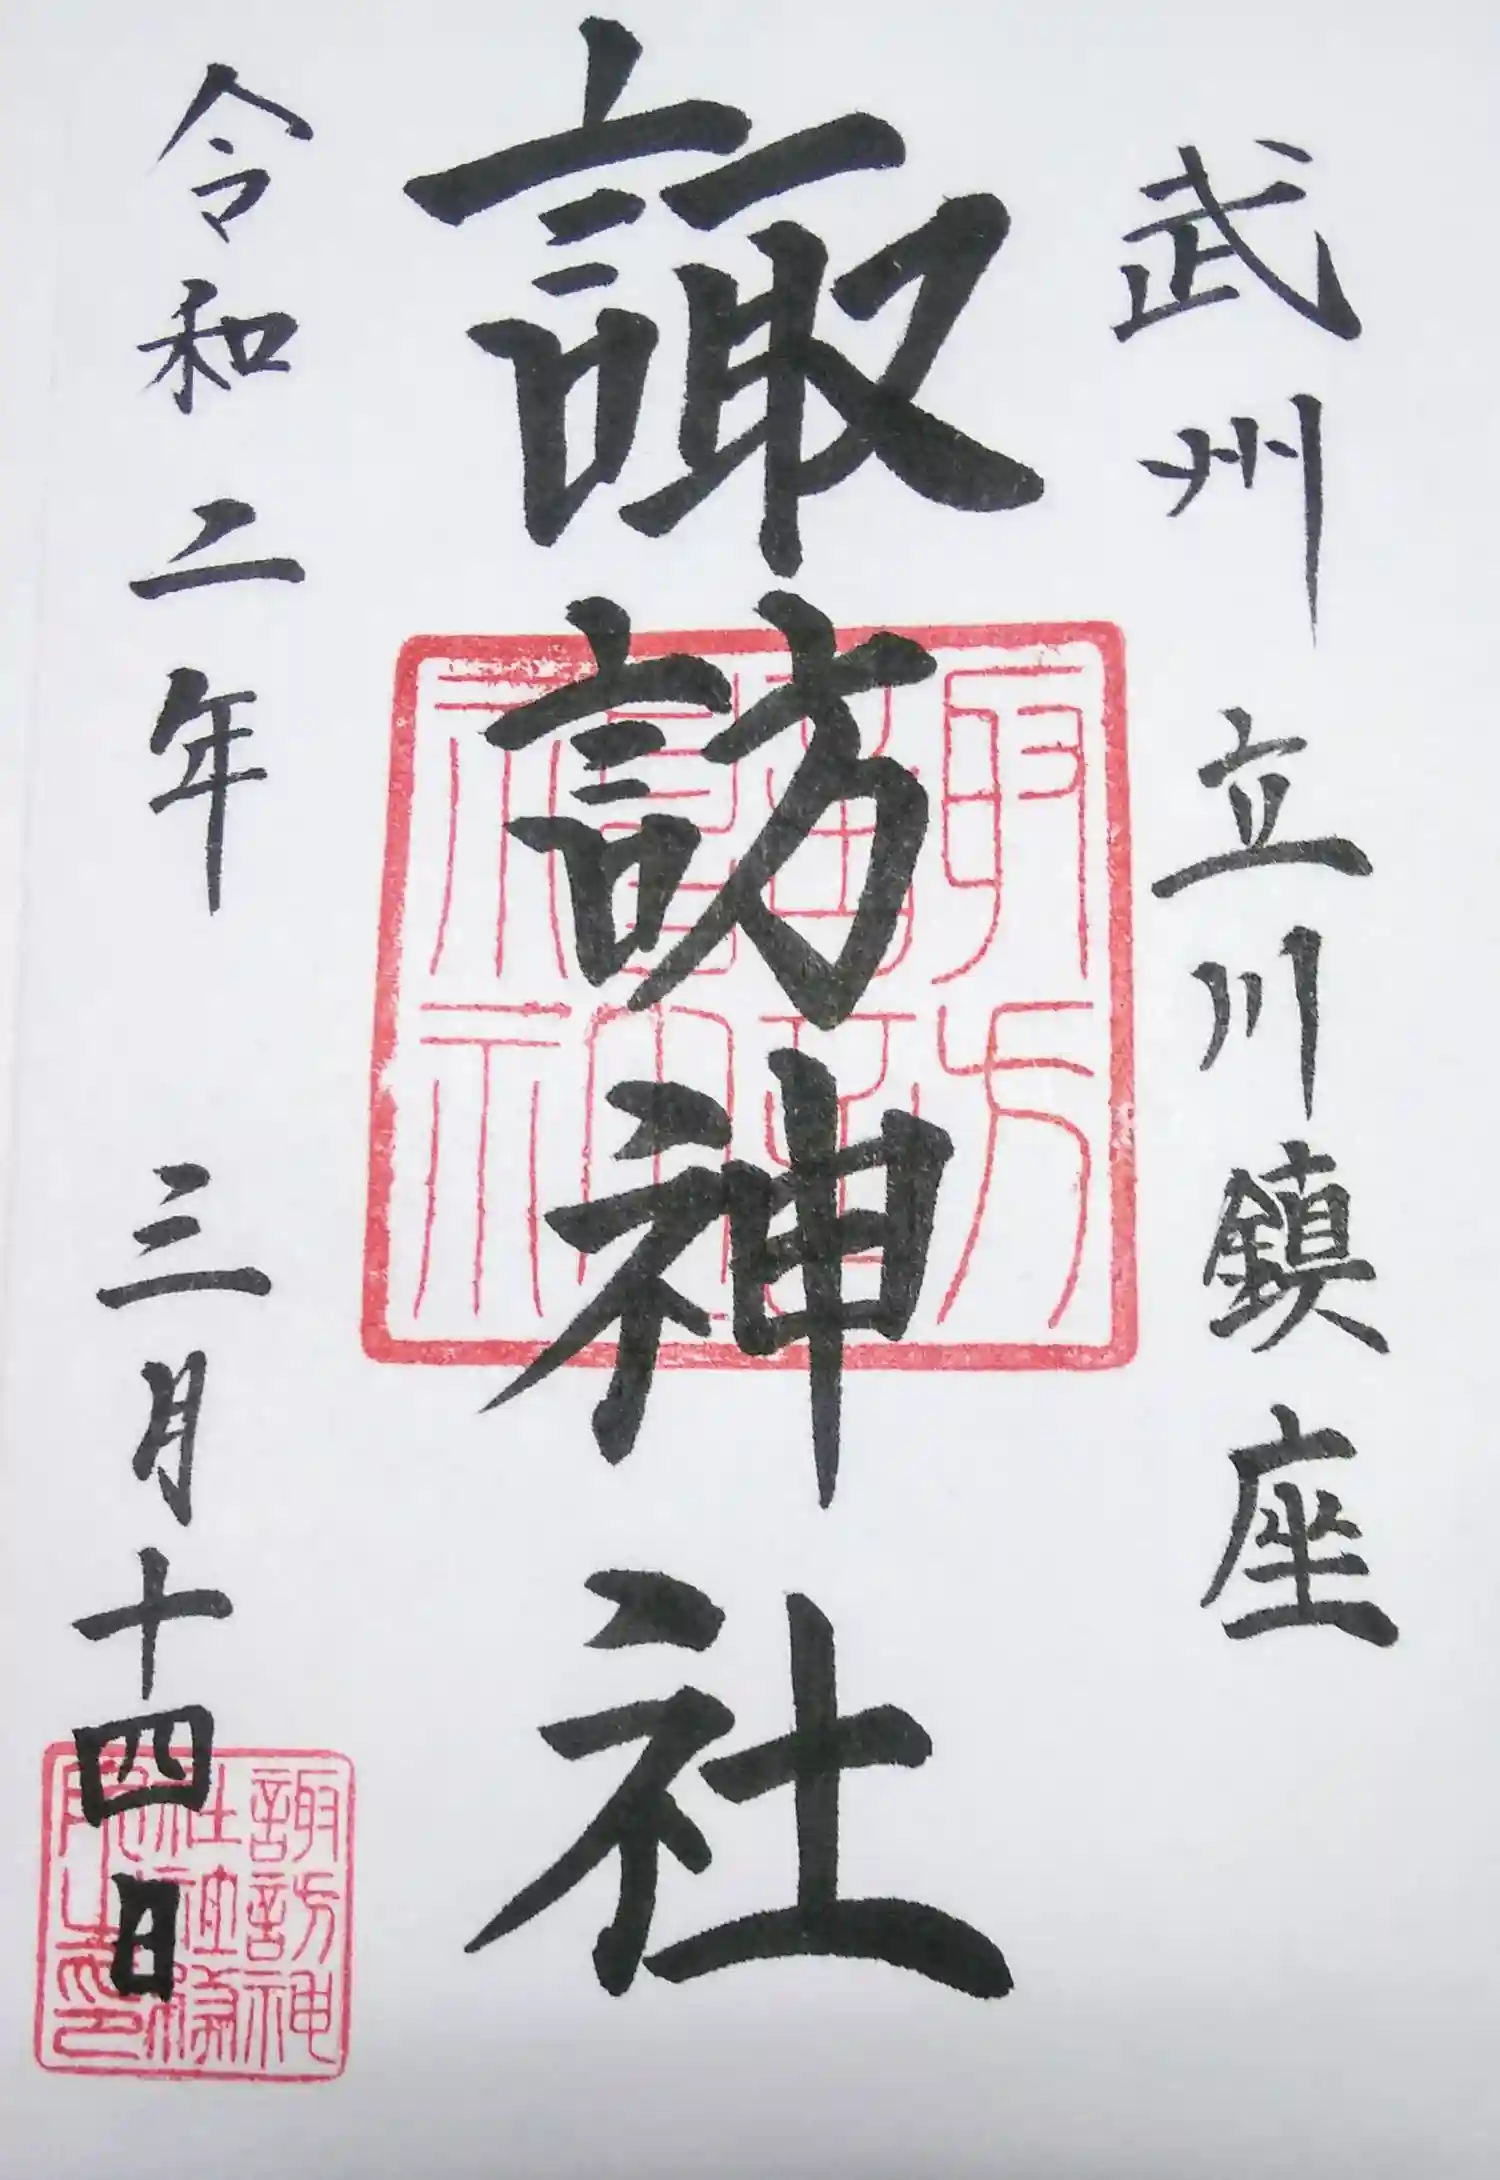 武州 立川鎮座
諏訪神社
令和二年 三月十四日